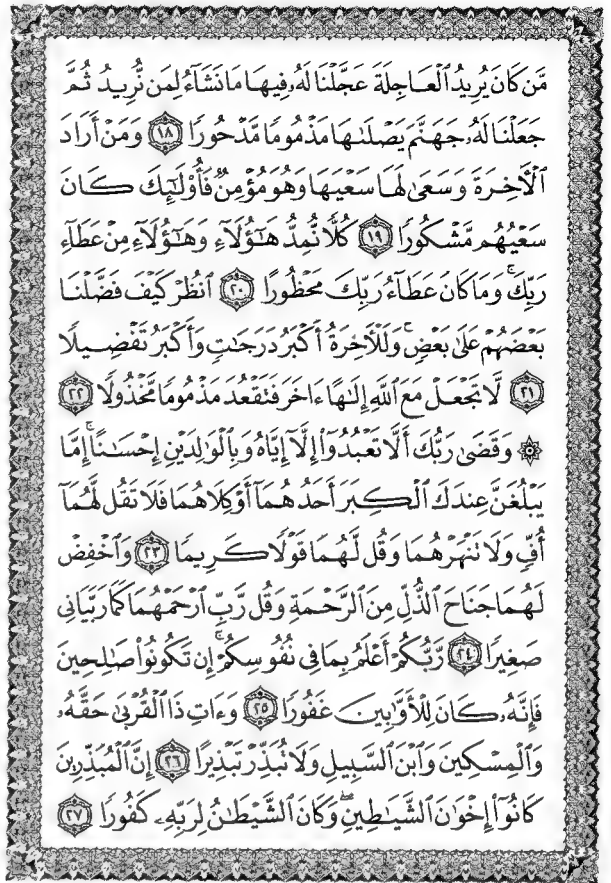 مَّن كَانَ يُرِيدُ ٱلْعَاجِلَةَ عَجَّلْنَا لَهُۥ فِيهَا مَا نَشَآءُ لِمَن نُّرِيدُ ثُمَّ
جَعَلْنَا لَهُۥ جَهَنَّمَ يَصْلَىٰهَا مَذْمُومًا مَّدْحُورًا ١٨ وَمَنْ أَرَادَ
ٱلْأَخِرَةَ وَسَعَىٰ لَهَا سَعْيَهَا وَهُوَ مُؤْمِنٌ فَأُو۟لَٰٓئِكَ كَانَ
سَعْيُهُم مَّشْكُورًا ١٩ كُلًّا نُّمِدُّ هَٰٓؤُلَآءِ وَهَٰٓؤُلَآءِ مِنْ عَطَآءِ
رَبِّكَ ۚ وَمَا كَانَ عَطَآءُ رَبِّكَ مَحْظُورًا ٢٠ ٱنظُرْ كَيْفَ فَضَّلْنَا
بَعْضَهُمْ عَلَىٰ بَعْضٍ ۚ وَلَلْأَخِرَةُ أَكْبَرُ دَرَجَٰتٍ وَأَكْبَرُ تَفْضِيلًا
٢١ لَّا تَجْعَلْ مَعَ ٱللَّهِ إِلَٰهًا ءَاخَرَ فَتَقْعُدَ مَذْمُومًا مَّخْذُولًا ٢٢
۞ وَقَضَىٰ رَبُّكَ أَلَّا تَعْبُدُوٓا۟ إِلَّآ إِيَّاهُ وَبِٱلْوَٰلِدَيْنِ إِحْسَٰنًا ۚ إِمَّا
يَبْلُغَنَّ عِندَكَ ٱلْكِبَرَ أَحَدُهُمَآ أَوْ كِلَاهُمَا فَلَا تَقُل لَّهُمَآ
أُفٍّ وَلَا تَنْهَرْهُمَا وَقُل لَّهُمَا قَوْلًا كَرِيمًا ٢٣ وَٱخْفِضْ
لَهُمَا جَنَاحَ ٱلذُّلِّ مِنَ ٱلرَّحْمَةِ وَقُل رَّبِّ ٱرْحَمْهُمَا كَمَا رَبَّيَانِى
صَغِيرًا ٢٤ رَّبُّكُمْ أَعْلَمُ بِمَا فِى نُفُوسِكُمْ ۚ إِن تَكُونُوا۟ صَٰلِحِينَ
فَإِنَّهُۥ كَانَ لِلْأَوَّٰبِينَ غَفُورًا ٢٥ وَءَاتِ ذَا ٱلْقُرْبَىٰ حَقَّهُۥ
وَٱلْمِسْكِينَ وَٱبْنَ ٱلسَّبِيلِ وَلَا تُبَذِّرْ تَبْذِيرًا ٢٦ إِنَّ ٱلْمُبَذِّرِينَ
كَانُوٓا۟ إِخْوَٰنَ ٱلشَّيَٰطِينِ ۖ وَكَانَ ٱلشَّيْطَٰنُ لِرَبِّهِۦ كَفُورًا ٢٧